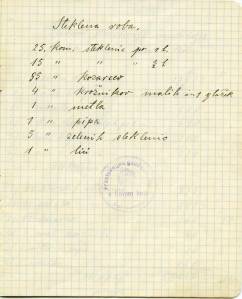 Steklena roba.
25 kom. steklenic po 1 l.
15 " " " 2 l
55 " kozarcev
4 " krožnikov malih in 1 globok
1 " metla
1 " pipa
5 " zelenih steklenic
1 " liv